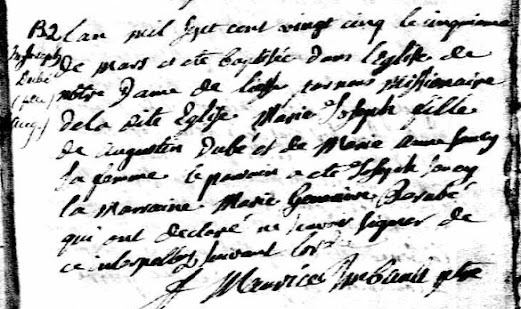 B2
Joseph
Dubé
L'an mil sept cent vingt cinq le cinquieme
de mars a eté baptisée dans l'Eglise de
nôtre Dame de liesse par nous Missionaire
de la dite Eglise Marie Joseph fille
de augustin Dubé et de Marie anne Soucy
sa femme le parain a eté Joseph Soucy
la Marraine Marie Genevieve Berubé
qui ont declaré ne scavoir signer de
ce interpellez suivant l'ord
f Maurice Imbault ptre